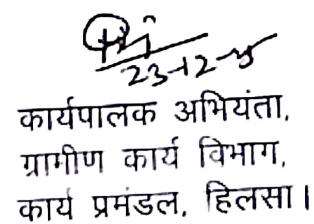 23-12-
कार्यपालक अभियंता,
ग्रामीण कार्य विभाग,
कार्य प्रमंडल, हिलसा।